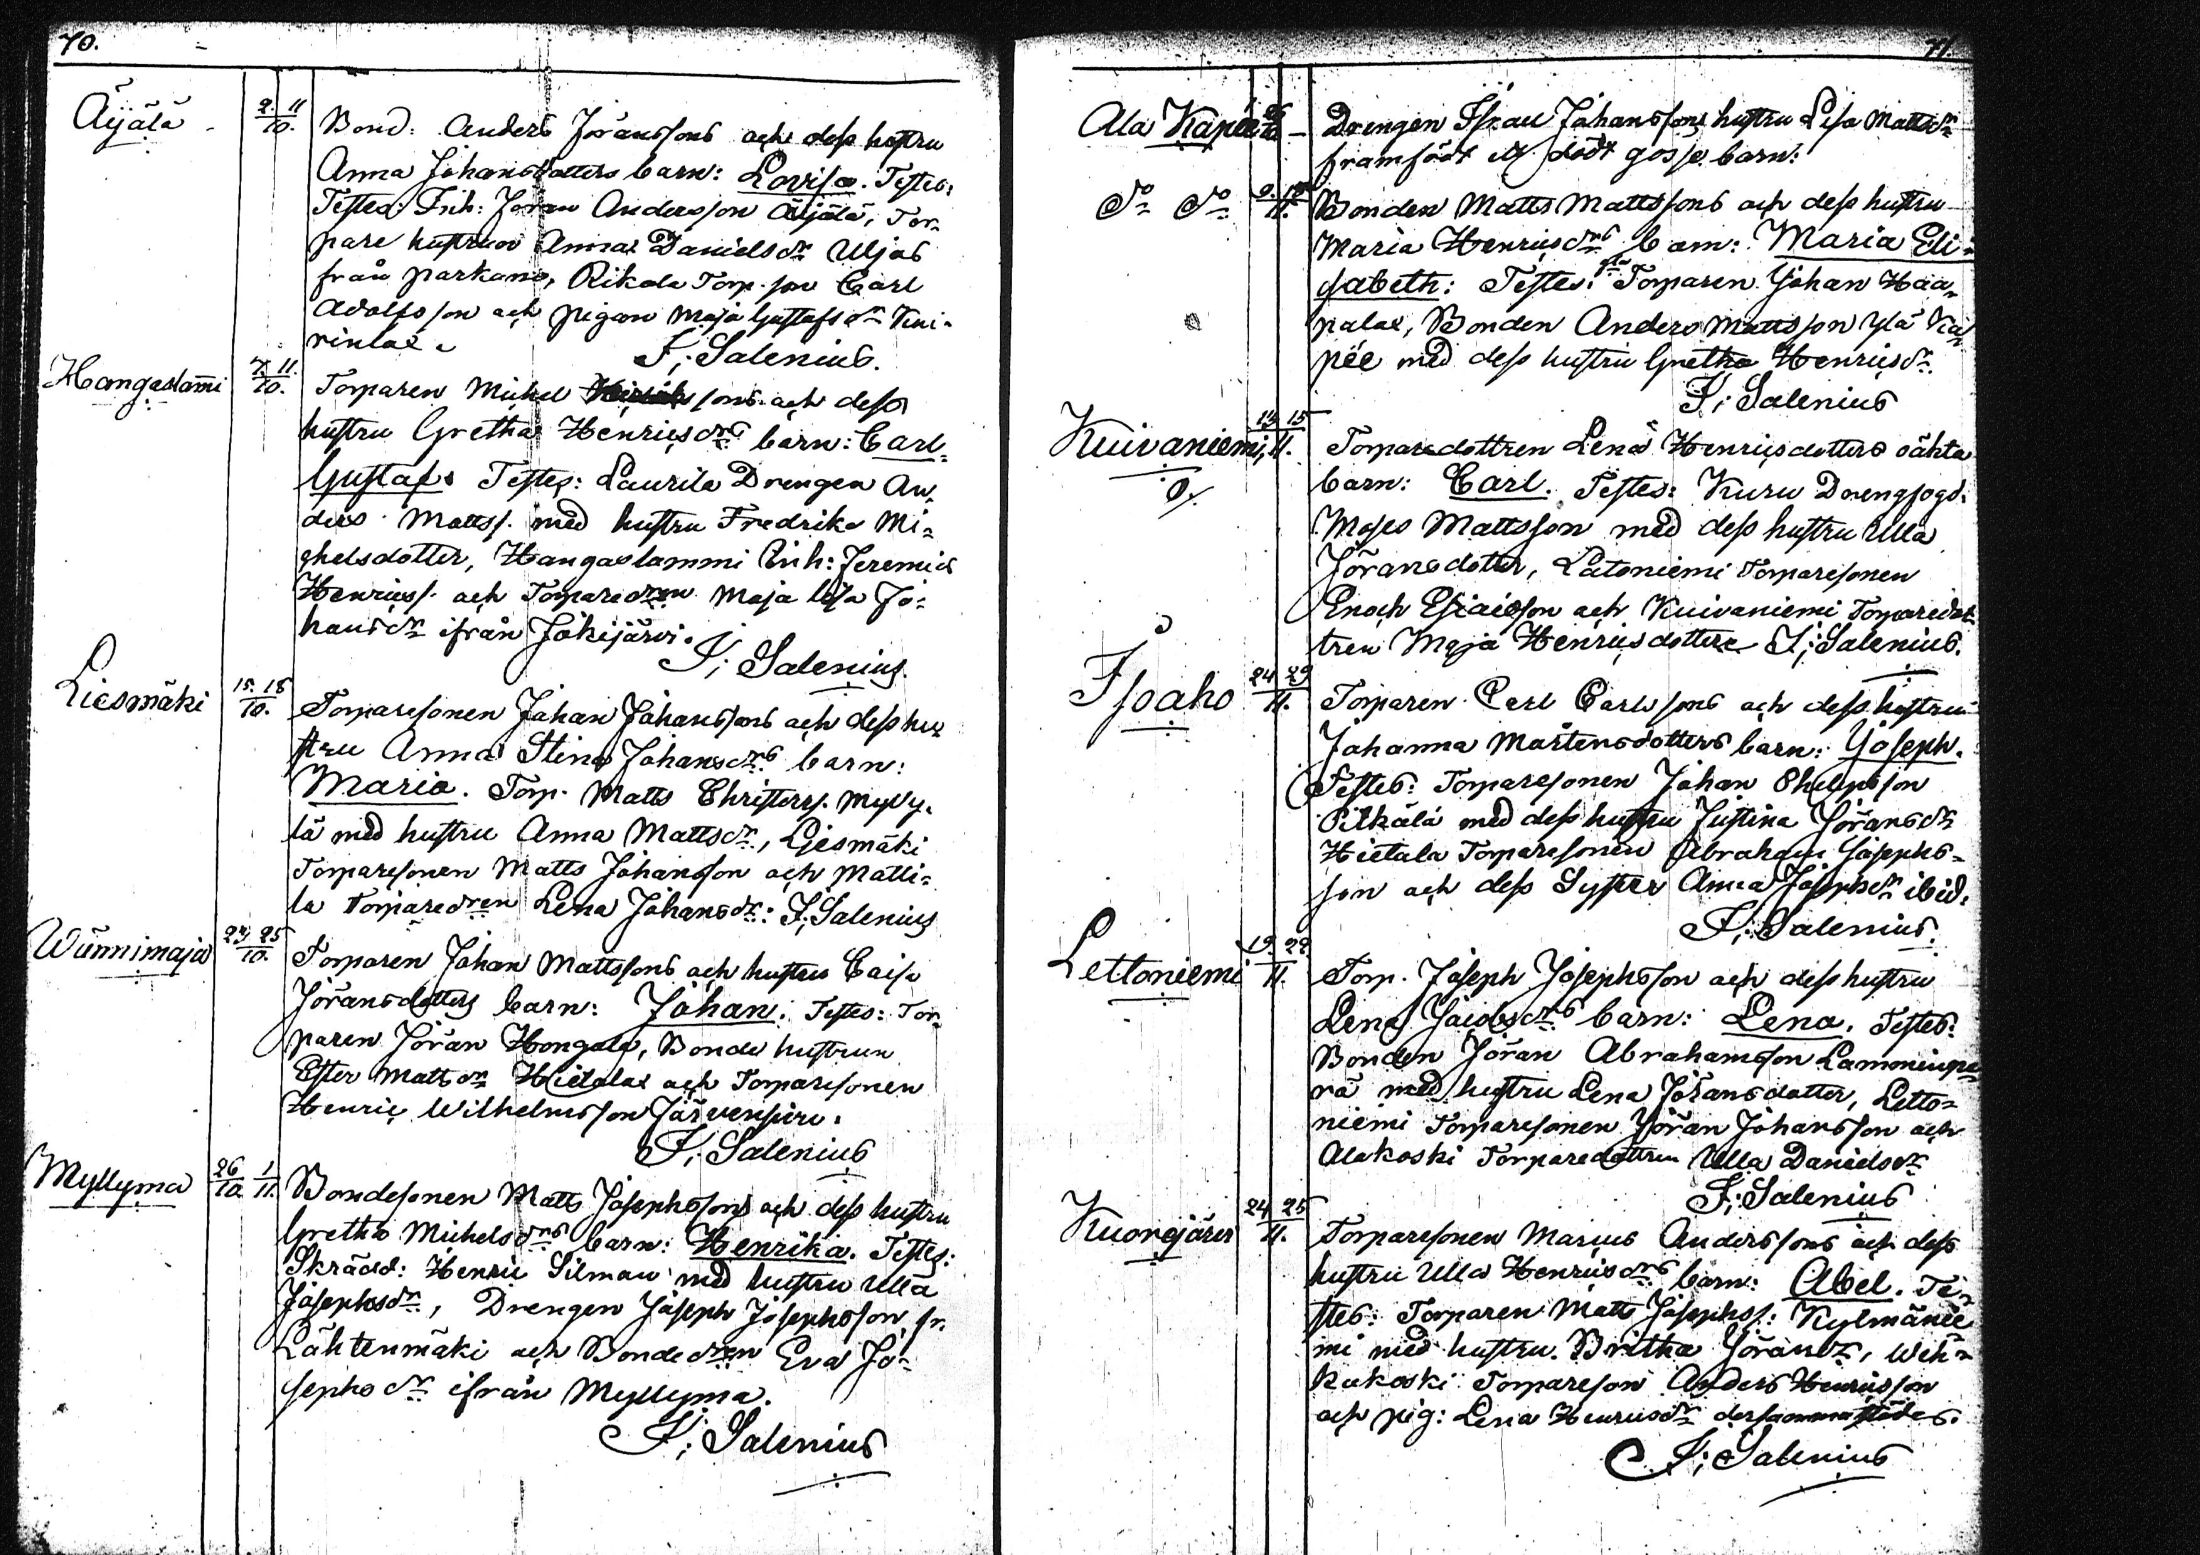 70.
Äijälä 2. 11 / 10. Bond: Anders Jöranssons och dess hustru
Anna Johansdotters barn: Lovisa. Testes:
Testes: Inh: Jöran Andersson Äijälä, Tor-
pare hustrun Anna Danielsdr Uljas
från parkano, Rikala Torp. son Carl
Adolfsson och pigan Maja Gustafsdr
J: Salenius.
Hangaslammi 7. 11. / 10. Torparen Michel sons och dess
hustru Gretha Henricsdrs barn: Carl
Gustaf. Testes: Laurila Drengen An-
ders Matts. med hustru Fredrika Mi-
chelsdotter, Hangaslammi Inh: Jeremias
Henrics. och Torparedren Maja Lisa Jo-
hansdr ifrån Jokijärvi.
J: Salenius.
Liesmäki 15. 18 / 10. Torparesonen Johan Johanssons och dess hu-
stru Anna Stina Johansdrs barn:
Maria. Torp. Matts Christers. Mylly-
lä med hustru Anna Mattsdr, Liesmäki
Torparesonen Matts Johansson och Matti-
la Torparedren Lena Johansdr: J: Salenius
Wännimaja 24. 25 / 10. Torparen Johan Mattssons och hustru Caisa
Jöransdotters barn: Johan. Testes: Tor-
paren Jöran Hongala, Bonde hustrun
Ester Mattsdr Hietala och Torparesonen
Henric Wilhelmsson Järvenpire.
J: Salenius
Myllymä 26 / 10. 1 / 11. Bondesonen Matts Josephssons och dess hustru
Gretha Michelsdrs barn: Henrika. Testes:
Skrädd: Henric Silman med hustru Ulla
Josephsdr, Drengen Joseph Josephsson fr.
Lähtenmäki och Bondedren Eva Jo-
sephsdr ifrån Myllymä.
J: Salenius
71.
Ala Käpee Drengen Isac Johanssons hustru Lisa Mattsdr
framfödt ett dödt gosse barn:
Do Do 9. / 11. Bonden Matts Mattssons och dess hustru
Maria Henricsdrs barn: Maria Eli-
sabeth: Testes: Torparen Johan Haa-
pala, Bonden Anders Mattsson Ylä Kä-
pée med dess hustru Gretha Henricsdr.
J: Salenius
Kuivaniemi, 14. 15 / 11. Torparedottren Lena Henricsdotters oäkta
barn: Carl. Testes: Kuru Drengfogd.
o. Moses Mattsson med dess hustru Ulla
Jöransdotter, Latoniemi Torparesonen
Enoch Esaiasson och Kuivaniemi Torparedot-
tren Maja Henricsdotter J: Salenius.
Isoaho 24 29 / 11. Torparen Carl Carlssons och dess hustru
Johanna Mårtensdotters barn: Joseph.
Testes: Torparesonen Johan Philipsson
Pitkälä med dess hustru Justina Jöransdr
Hietala Torparesonen Abraham Josephs-
son och dess Syster Anna Josephsdr ibid.
J: Salenius.
Lettoniemi 19. 22 / 11. Torp. Joseph Josephsson och dess hustru
Lena Jacobsdrs barn: Lena. Testes:
Bonden Jöran Abrahamsson Lamminpe-
rä med hustru Lena Jöransdotter, Letto-
niemi Torparesonen Jöran Johansson och
Alakoski Torparedottren Ulla Danielsdr
J: Salenius
Kuorejärvi 24 25 / 11. Torparesonen Marcus Anderssons och dess
hustru Ulla Henricsdrs barn: Abel. Te-
stes: Torparen Matts Josephs.: Kylmänie-
mi med hustru Britha Jöransdr, Weh-
kakoski Torpareson Anders Henricsson
och pig: Lena Henricsdr dersammastädes.
J: Salenius